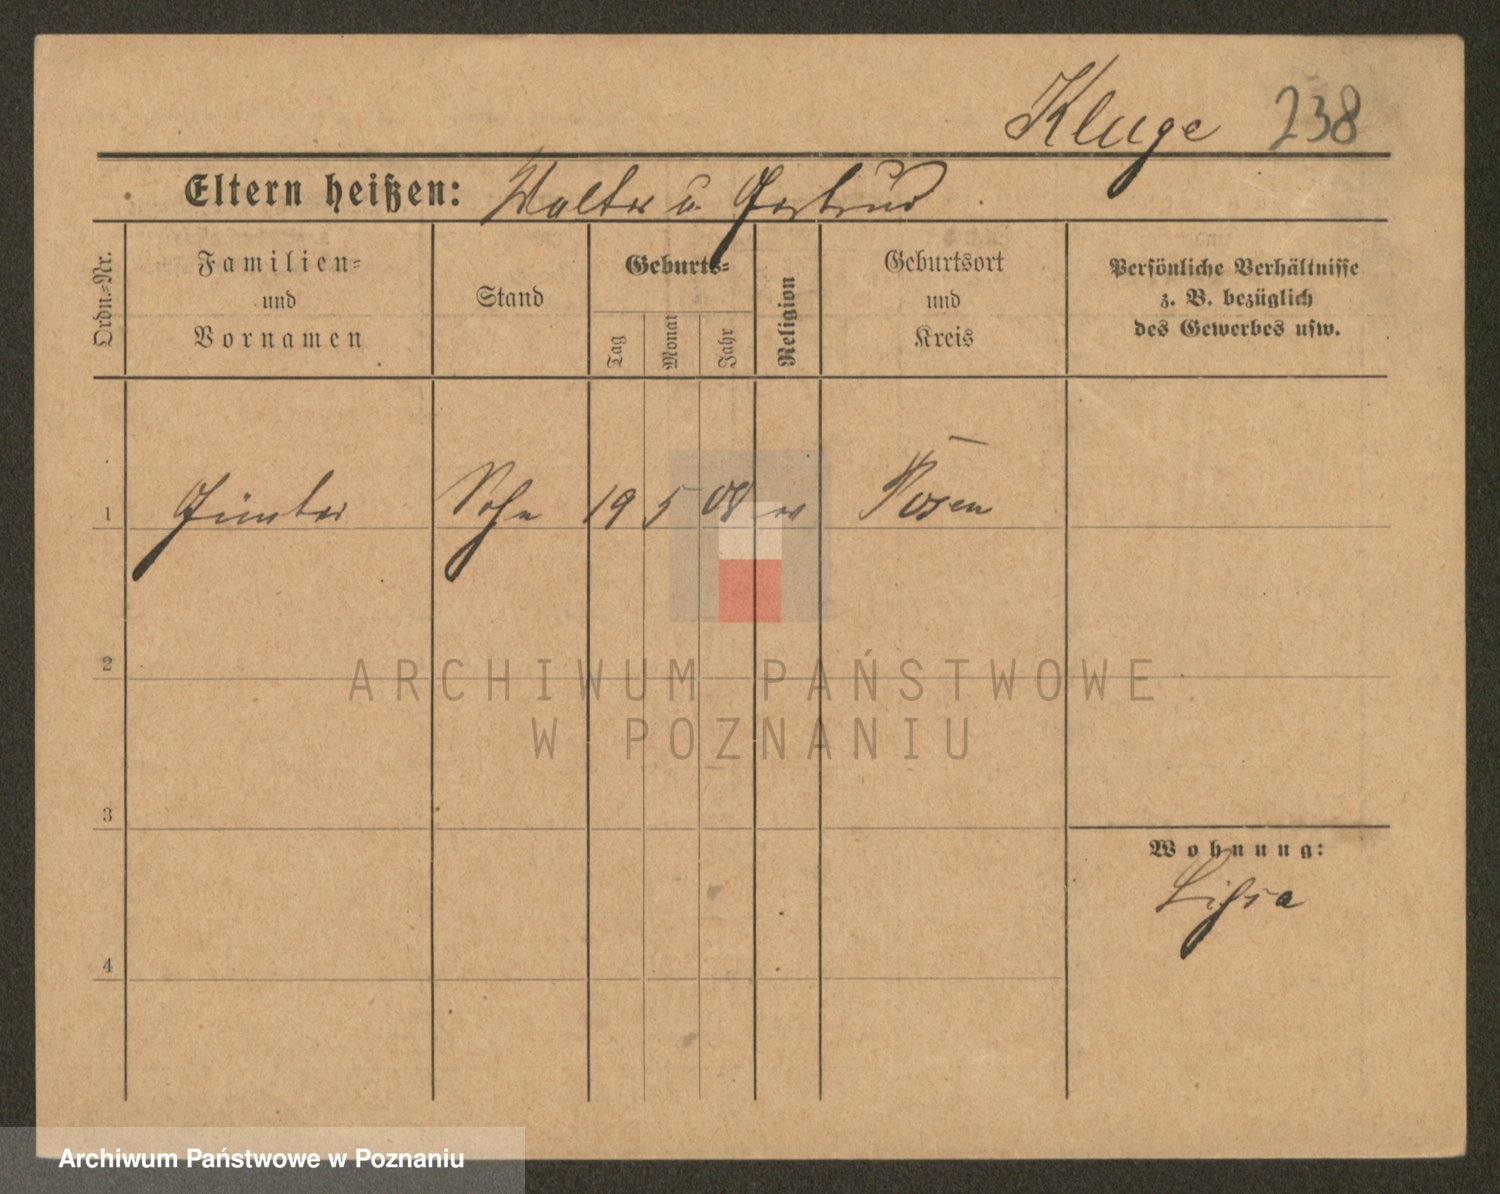 Kluge 238
Eltern heißen: Walter u. Gertrud
Ordn.-Nr.
Familien-
und
Vornamen
Stand
Geburts-
Tag
Monat
Jahr
Religion
Geburtsort
und
Kreis
Persönliche Verhältnisse
z. B. bezüglich
des Gewerbes usw.
1 Günter Sohn 19 5 08 ev Posen
2
3
4
Wohnung:
Lissa
ARCHIWUM PAŃSTWOWE
W POZNANIU
Archiwum Państwowe w Poznaniu